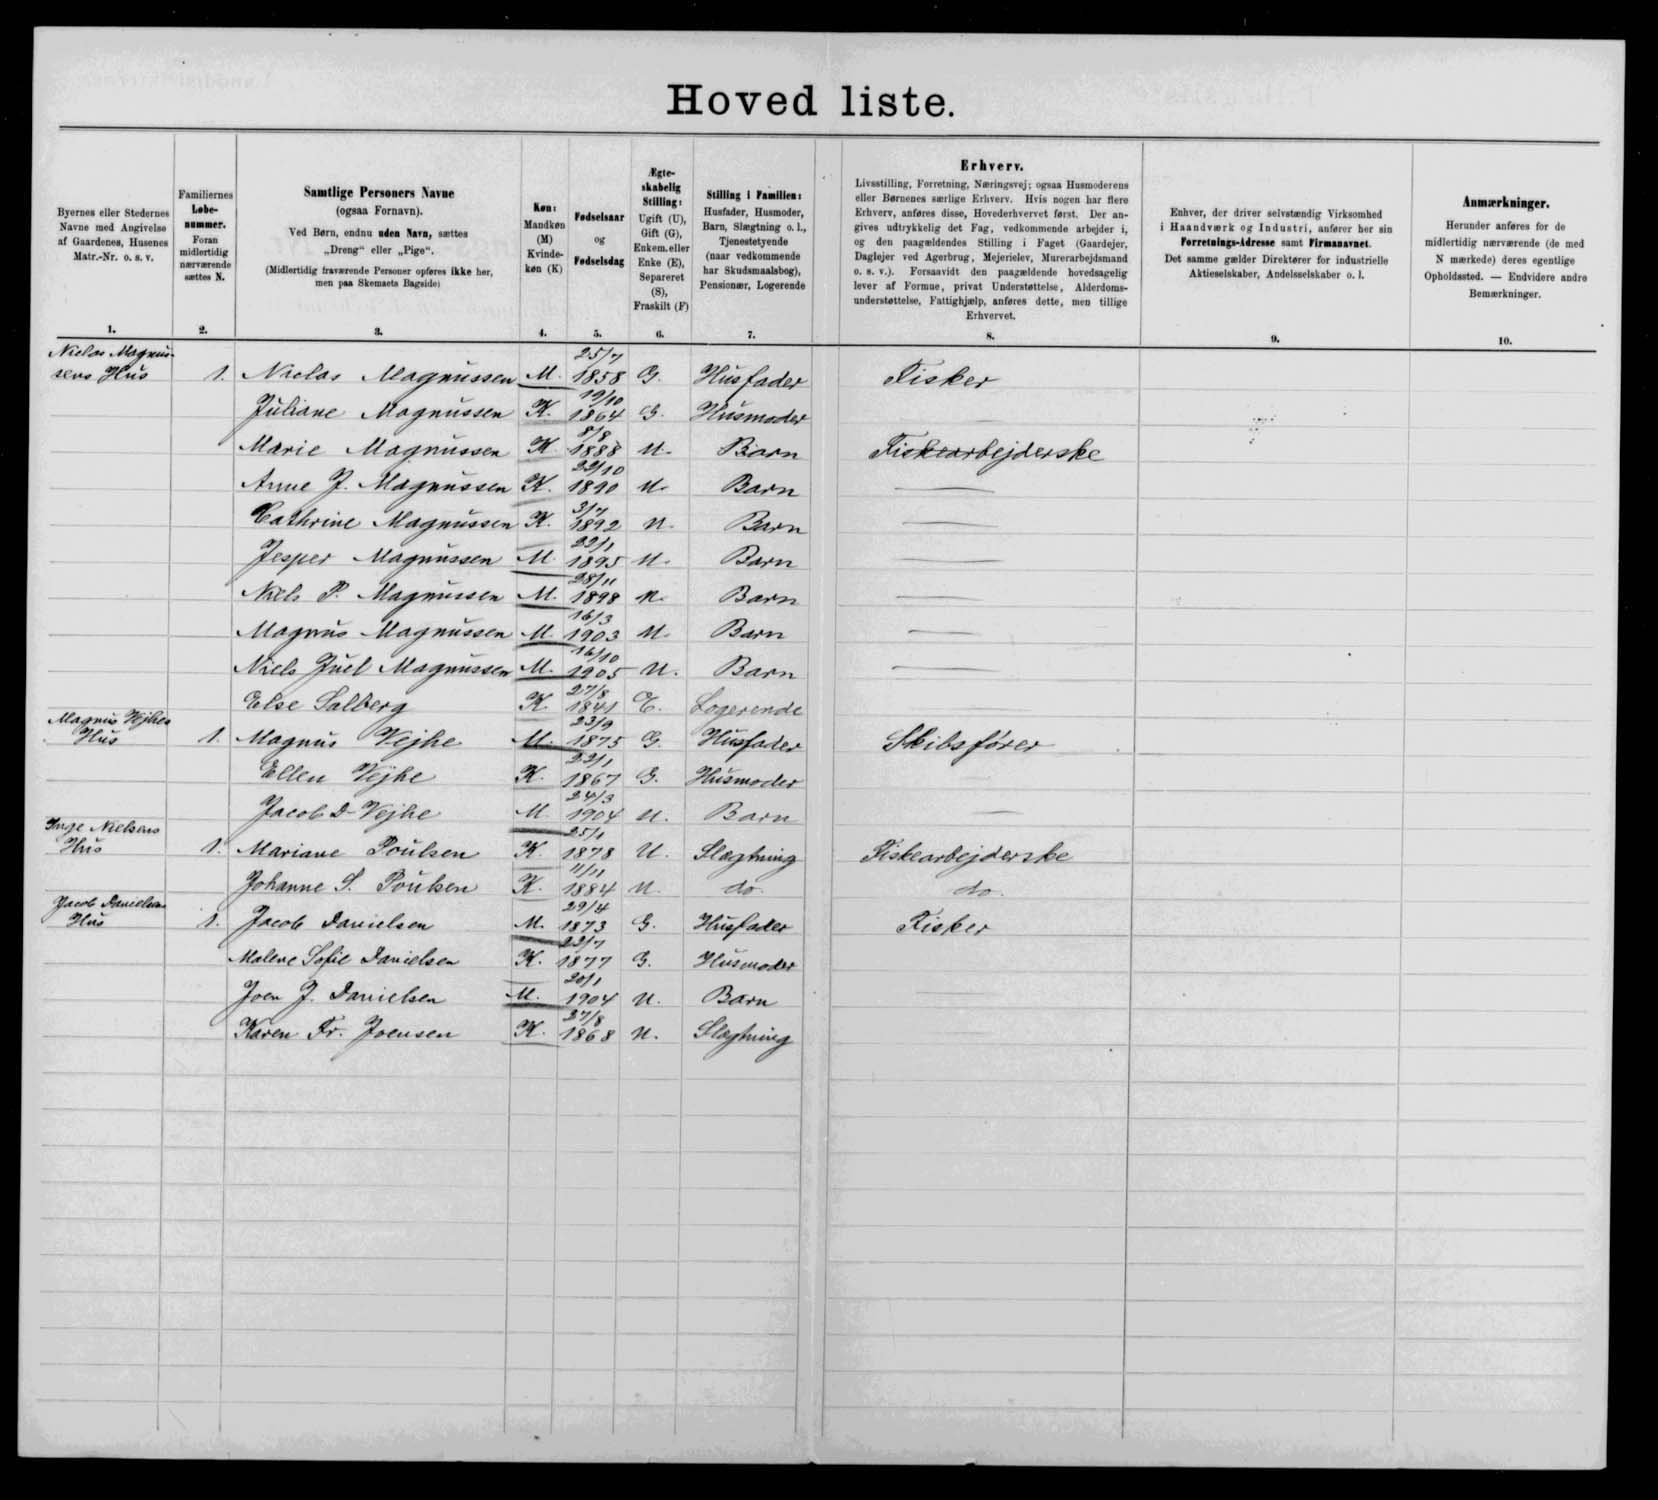 Hoved liste.
Byernes eller Stedernes
Navne med Angivelse
af Gaardenes, Husenes
Matr.-Nr. o. s. v.
1.
Familiernes
Løbe-
nummer.
Foran
midlertidig
nærværende
sættes N.
2.
Samtlige Personers Navne
(ogsaa Fornavn).
Ved Børn, endnu uden Navn, sættes
„Dreng“ eller „Pige“.
(Midlertidig fraværende Personer opføres ikke her,
men paa Skemaets Bagside)
3.
Køn:
Mandkøn
(M)
Kvinde-
køn (K)
4.
Fødselsaar
og
Fødselsdag
5.
Ægte-
skabelig
Stilling:
Ugift (U),
Gift (G),
Enkem. eller
Enke (E),
Separeret
(S),
Fraskilt (F)
6.
Stilling i Familien:
Husfader, Husmoder,
Barn, Slægtning o. l.,
Tjenestetyende
(naar vedkommende
har Skudsmaalsbog),
Pensionær, Logerende
7.
Erhverv.
Livsstilling, Forretning, Næringsvej; ogsaa Husmoderens
eller Børnenes særlige Erhverv. Hvis nogen har flere
Erhverv, anføres disse, Hovederhvervet først. Der an-
gives udtrykkelig det Fag, vedkommende arbejder i,
og den paagældendes Stilling i Faget (Gaardejer,
Daglejer ved Agerbrug, Mejerielev, Murerarbejdsmand
o. s. v.). Forsaavidt den paagældende hovedsagelig
lever af Formue, privat Understøttelse, Alderdoms-
understøttelse, Fattighjælp, anføres dette, men tillige
Erhvervet.
8.
Enhver, der driver selvstændig Virksomhed
i Haandværk og Industri, anfører her sin
Forretnings-Adresse samt Firmanavnet.
Det samme gælder Direktører for industrielle
Aktieselskaber, Andelsselskaber o. l.
9.
Anmærkninger.
Herunder anføres for de
midlertidig nærværende (de med
N mærkede) deres egentlige
Opholdssted. — Endvidere andre
Bemærkninger.
10.
Niclas Magnus-
sens Hus 1. Niclas Magnussen M. 25/7 1858 G. Husfader Fisker
Juliane Magnussen K. 19/10 1864 G. Husmoder —
Marie Magnussen K. 8/8 1888 U. Barn Fiskearbejderske
Anne J. Magnussen K. 22/10 1890 U. Barn —
Cathrine Magnussen K. 3/7 1892 U. Barn —
Jesper Magnussen M. 22/1 1895 U. Barn —
Niels P. Magnussen M. 28/11 1898 U. Barn —
Magnus Magnussen M. 16/3 1903 U. Barn —
Niels Juel Magnussen M. 16/10 1905 U. Barn —
Else Salberg K. 27/8 1841 E. Logerende
Magnus Vejhes
Hus 1. Magnus Vejhe M. 23/9 1875 G. Husfader Skibsfører
Ellen Vejhe K. 22/1 1867 G. Husmoder
Jacob D. Vejhe M. 24/3 1904 U. Barn —
Inge Nielsens
Hus 1. Mariane Poulsen K. 25/1 1878 U. Slægtning Fiskearbejderske
Johanne S. Poulsen K. 11/11 1884 U. do. do.
Jacob Danielsens
Hus 1. Jacob Danielsen M. 29/4 1873 G. Husfader Fisker
Malene Sofie Danielsen K. 22/7 1877 G. Husmoder
Joen J. Danielsen M. 20/1 1904 U. Barn
Karen Fr. Joensen K. 27/8 1868 U. Slægtning